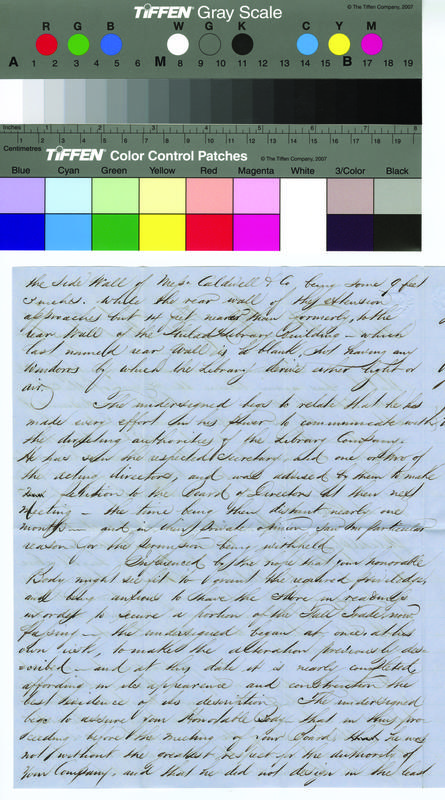 TIFFEN Gray Scale
© The Tiffen Company, 2007
R G B W G K C Y M
A 1 2 3 4 5 6 M 8 9 10 11 12 13 14 15 B 17 18 19
Inches 1 2 3 4 5 6 7 8
Centimetres 1 2 3 4 5 6 7 8 9 10 11 12 13 14 15 16 17 18 19
TIFFEN Color Control Patches
© The Tiffen Company, 2007
Blue Cyan Green Yellow Red Magenta White 3/Color Black
the side Wall of Caldwell & Co being some 9 feet
inches. While the rear wall of the extension
approaches but 14 feet nearer than formerly, to the
rear Wall of the Library Building — which
last named rear Wall is a blank not having any
Windows by which the Library light or
air.
The undersigned begs to relate that he has
made every effort in his power to communicate with
the authorities of the Library Company.
He has seen the respected Secretary and one or two of
the acting directors, and was advised by them to make
petition to the Board of Directors at their next
Meeting — the time being then distant nearly one
month — and in their private opinion saw no particular
reason for the permission being withheld
Influenced by the hope that your honorable
Body might see fit to grant the required privilege,
and being anxious to have the Store in readiness
in order to secure a portion of the Fall Trade, now
passing — the undersigned began at once at his
own risk, to make the alteration previously des-
cribed — and at this date it is nearly completed,
affording in its appearance and construction the
best evidence of its description. The undersigned
begs to assure your Honorable Body that in thus pro-
ceeding before the meeting of your Board, he was
not without the greatest respect for the authority of
Your Company, and that he did not design in the least